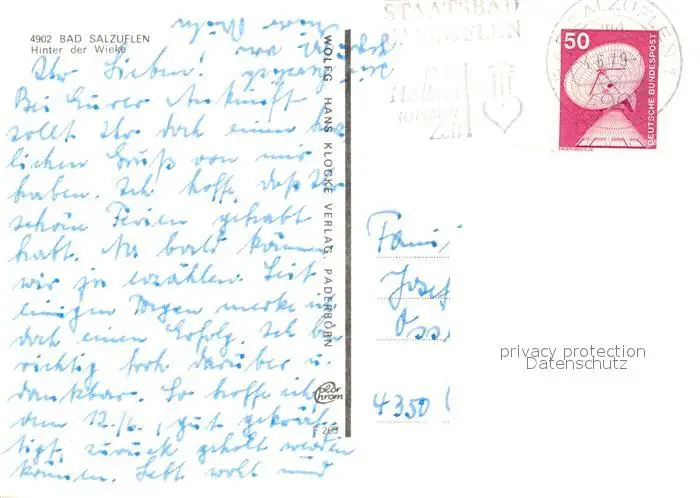 STAATSBAD
SALZUFLEN
Heilen
unserer
Zeit
SALZUFLEN 1
50
DEUTSCHE BUNDESPOST
4902 BAD SALZUFLEN
Hinter der Wieke
Ihr Lieben!
Bei Eurer Ankunft
sollt Ihr doch einen herz
lichen Gruß von mir
haben. Ich hoffe, daß Ihr
schöne Ferien gehabt
habt. Na bald können
wir ja erzählen. Seit
einigen Tagen merke ich
doch einen Erfolg. Ich bin
richtig froh darüber u.
dankbar. So hoffe ich
dem 12./6., gut gekräf-
tigt, zurück geholt werden
können. Lebt wohl und
WOLFG. HANS KLOCKE VERLAG, PADERBORN
color
chrom
F 269
Fami
Josef
Oss
4350
privacy protection
Datenschutz